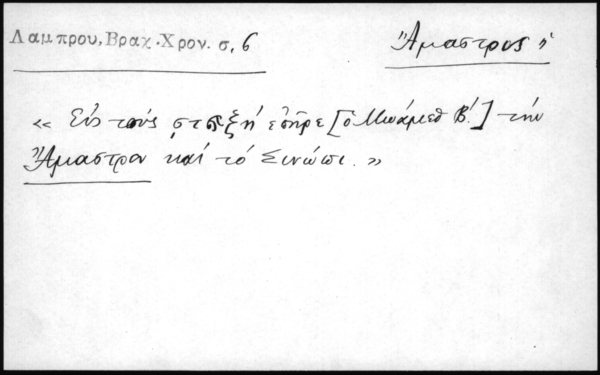 Λαμπρου, Βραχ. Χρον. σ. 6
Ἄμαστρος ἡ
« Εἰς τοὺς ϛϡξη' ἐπῆρε [ὁ Μωάμεθ Β'.] τὴν
Ἄμαστραν καὶ τὸ Σινώπι. »